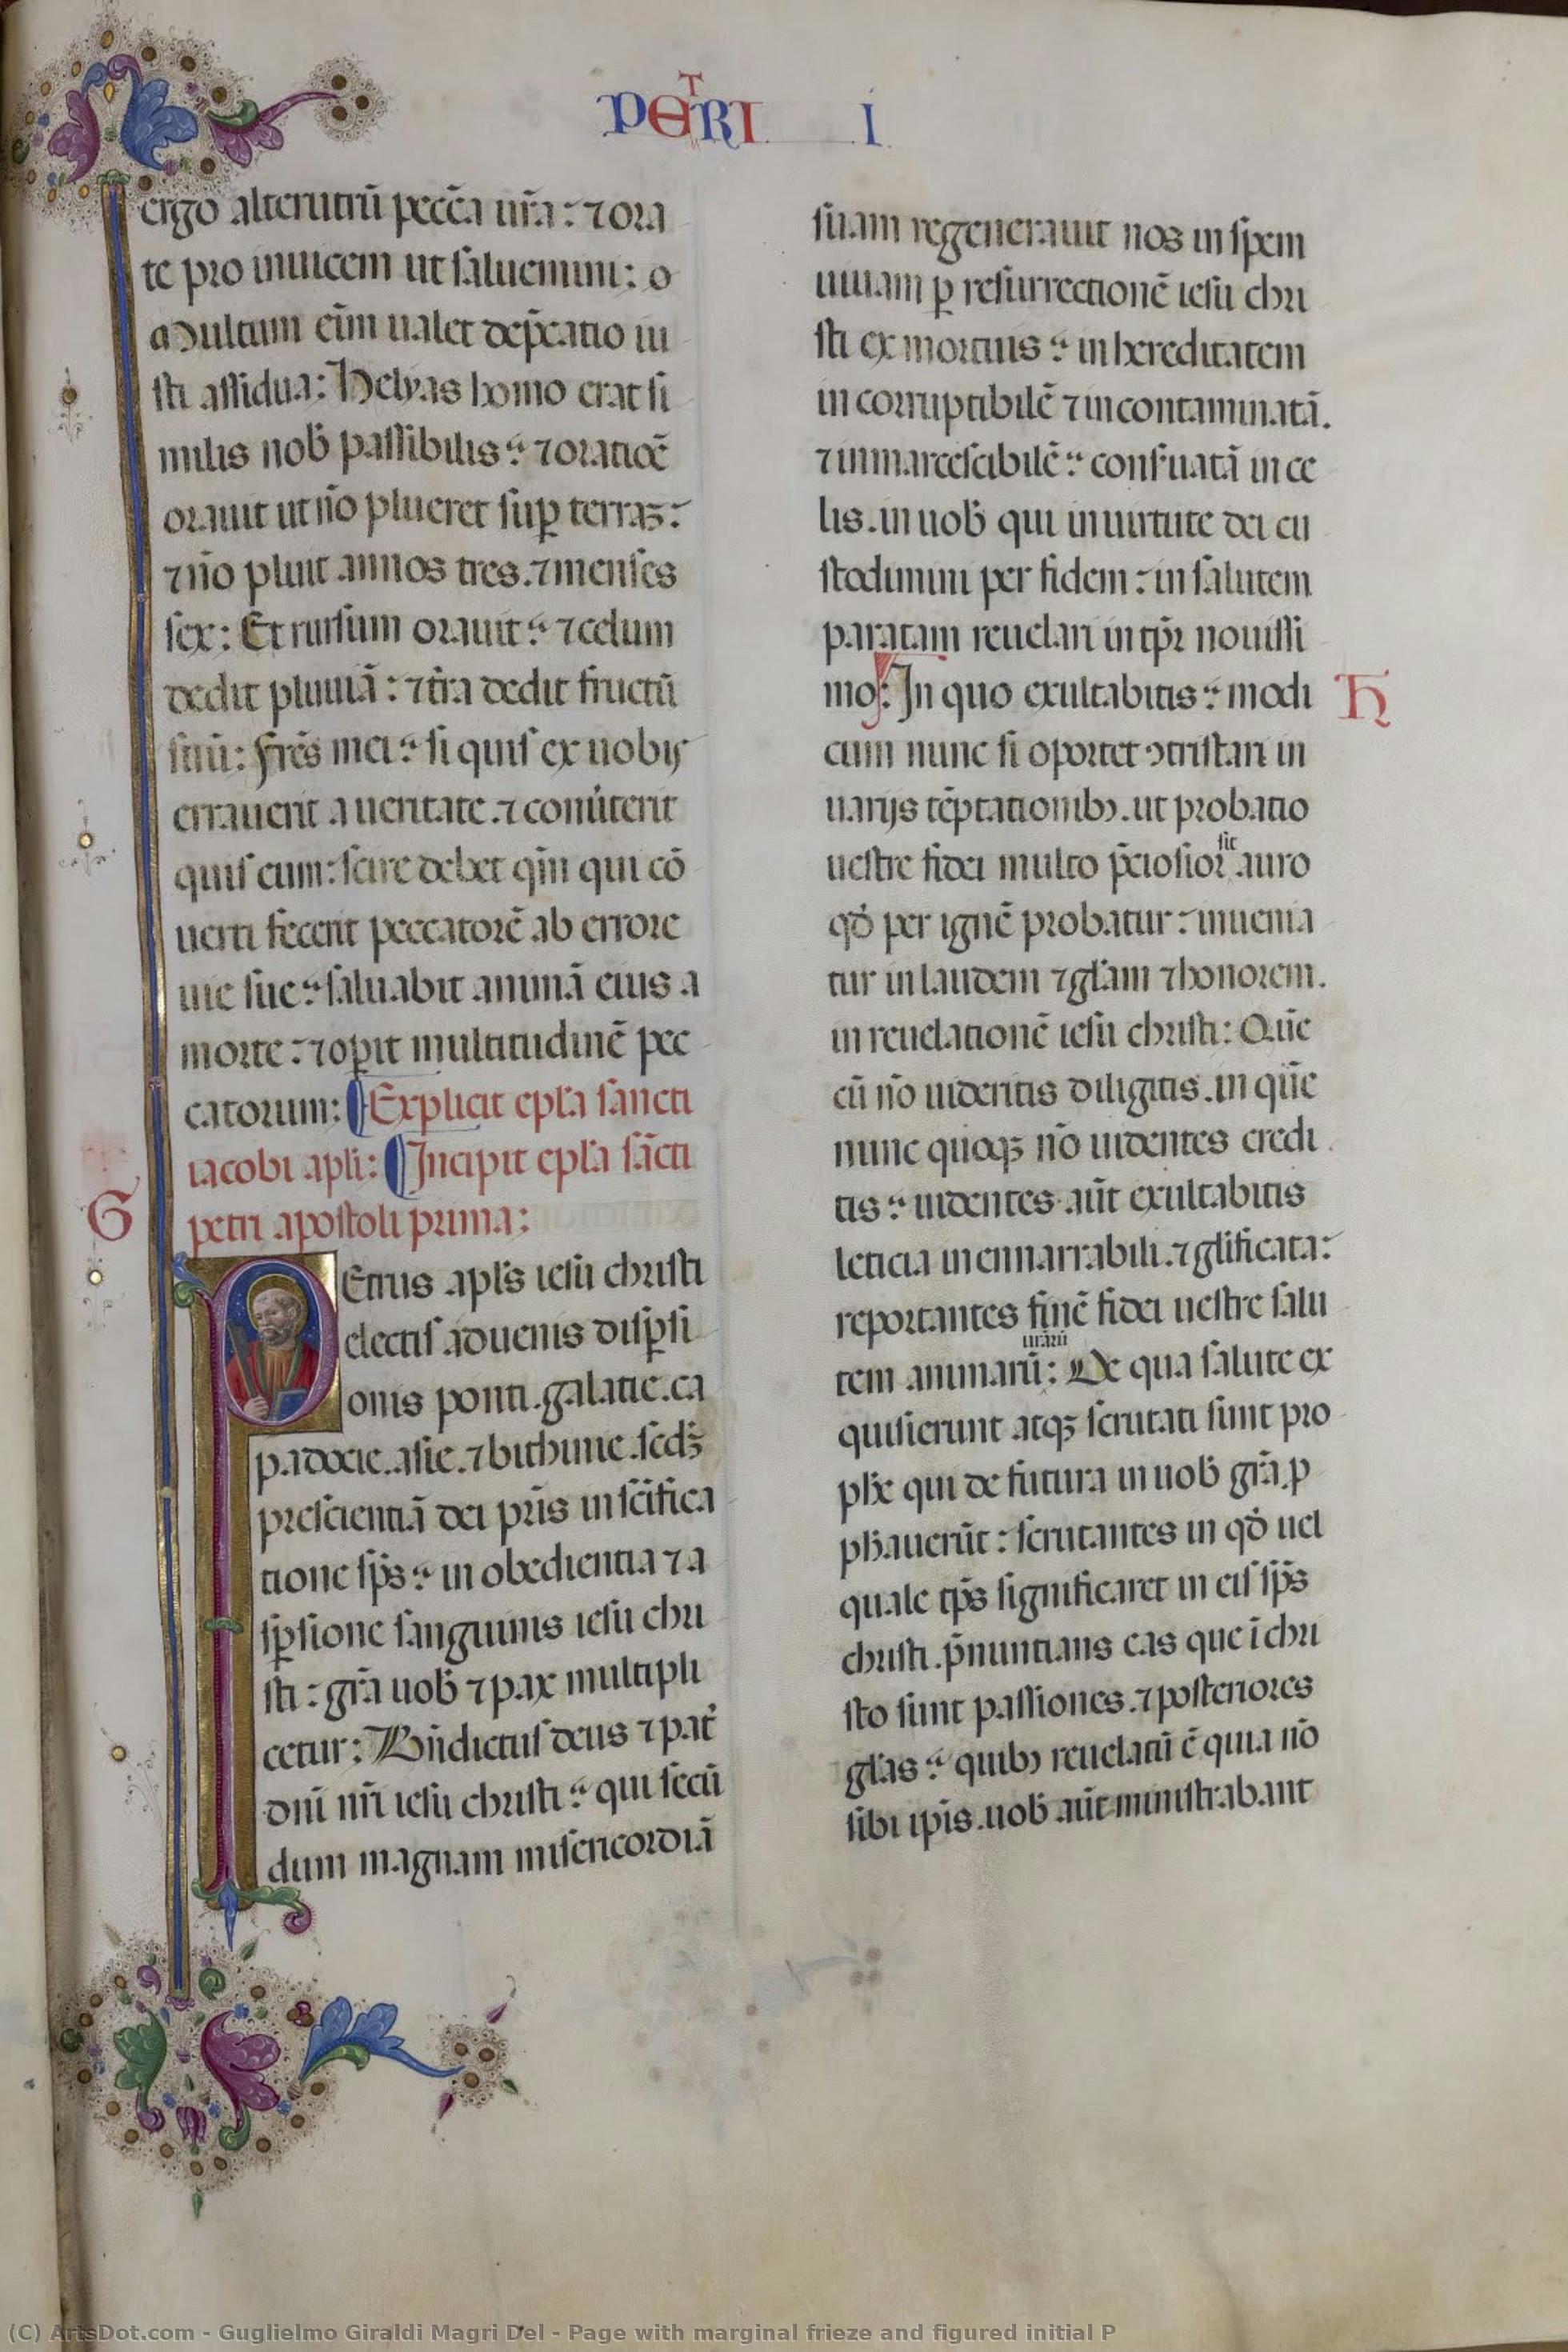 PETRI I
ergo alterutrū pecc̄a ur̄a: ⁊ ora
te pro inuicem ut saluemini: o
Multum eīm ualet dep̄catio iu
sti assidua: Helyas homo erat si
milis nob̄ passibilis: ⁊ oratiōē
orauit ut n̄o plueret suꝑ terraꝫ:
⁊ n̄o pluit annos tres. ⁊ menses
sex: Et rursum orauit: ⁊ celum
dedit pluuiā: ⁊ tr̄a dedit fructū
suū: Frēs mei: si quis ex nobis
errauerit a ueritate. ⁊ conūterit
quis eum: scire debet qm̄ qui cō
uerti fecerit peccatorē ab errore
uie sue: saluabit animā eius a
morte: ⁊ oꝑit multitudinē pec
catorum: ¶ Explicit epl̄a sancti
iacobi apl̄i: ¶ Incipit epl̄a sc̄āti
petri apostoli prima:
G
PEtrus apl̄s iesu christi
electis aduenis disꝑsi
onis ponti. galatie. ca
padocie. asie. ⁊ bithinie. scdꝫ
prescientiā dei pr̄is in sc̄ifica
tione sp̄s: in obedientia ⁊ a
sꝑsione sanguinis iesu chri
sti: gr̄a uob̄ ⁊ pax multipli
cetur: Bn̄dictus deus ⁊ pat̄
dn̄i nr̄i iesu christi: qui secū
dum magnam misericordiā
suam regenerauit nos in spem
uiuam ꝑ resurrectionē iesu chri
sti ex mortuis: in hereditatem
in corruptibilē ⁊ incontaminatā.
⁊ inmarcescibilē: cons̄uatā in ce
lis. in uob̄ qui in uirtute dei cu
stodimini per fidem: in salutem
paratam reuelari in tp̄r nouissi
mo: In quo exultabitis: modi
H
cum nunc si oportet ꝯtristari in
uarijs tēptationibꝫ. ut probatio
uestre fidei multo p̄ciosior sit auro
qd̄ per ignē probatur: inuenia
tur in laudem ⁊ gl̄am ⁊ honorem.
in reuelationē iesu christi: Quē
cū n̄o uideritis diligitis. in quē
nunc quoqꝫ n̄o uidentes credi
tis: uidentes aūt exultabitis
leticia inennarrabili. ⁊ gl̄ificata:
reportantes finē fidei uestre salu
tem animarū ur̄arū: De qua salute ex
quisierunt atqꝫ scrutati sunt pro
ph̄e qui de futura in uob̄ gr̄a. p
ph̄auerūt: scrutantes in qd̄ uel
quale tp̄s significaret in eis sp̄s
christi. p̄nuntians eas que ī chri
sto sunt passiones. ⁊ posteriores
gl̄as: quibꝫ reuelatū ē quia n̄o
sibi ip̄is. uob̄ aūt ministrabant
(C) ArtsDot.com - Guglielmo Giraldi Magri Del - Page with marginal frieze and figured initial P